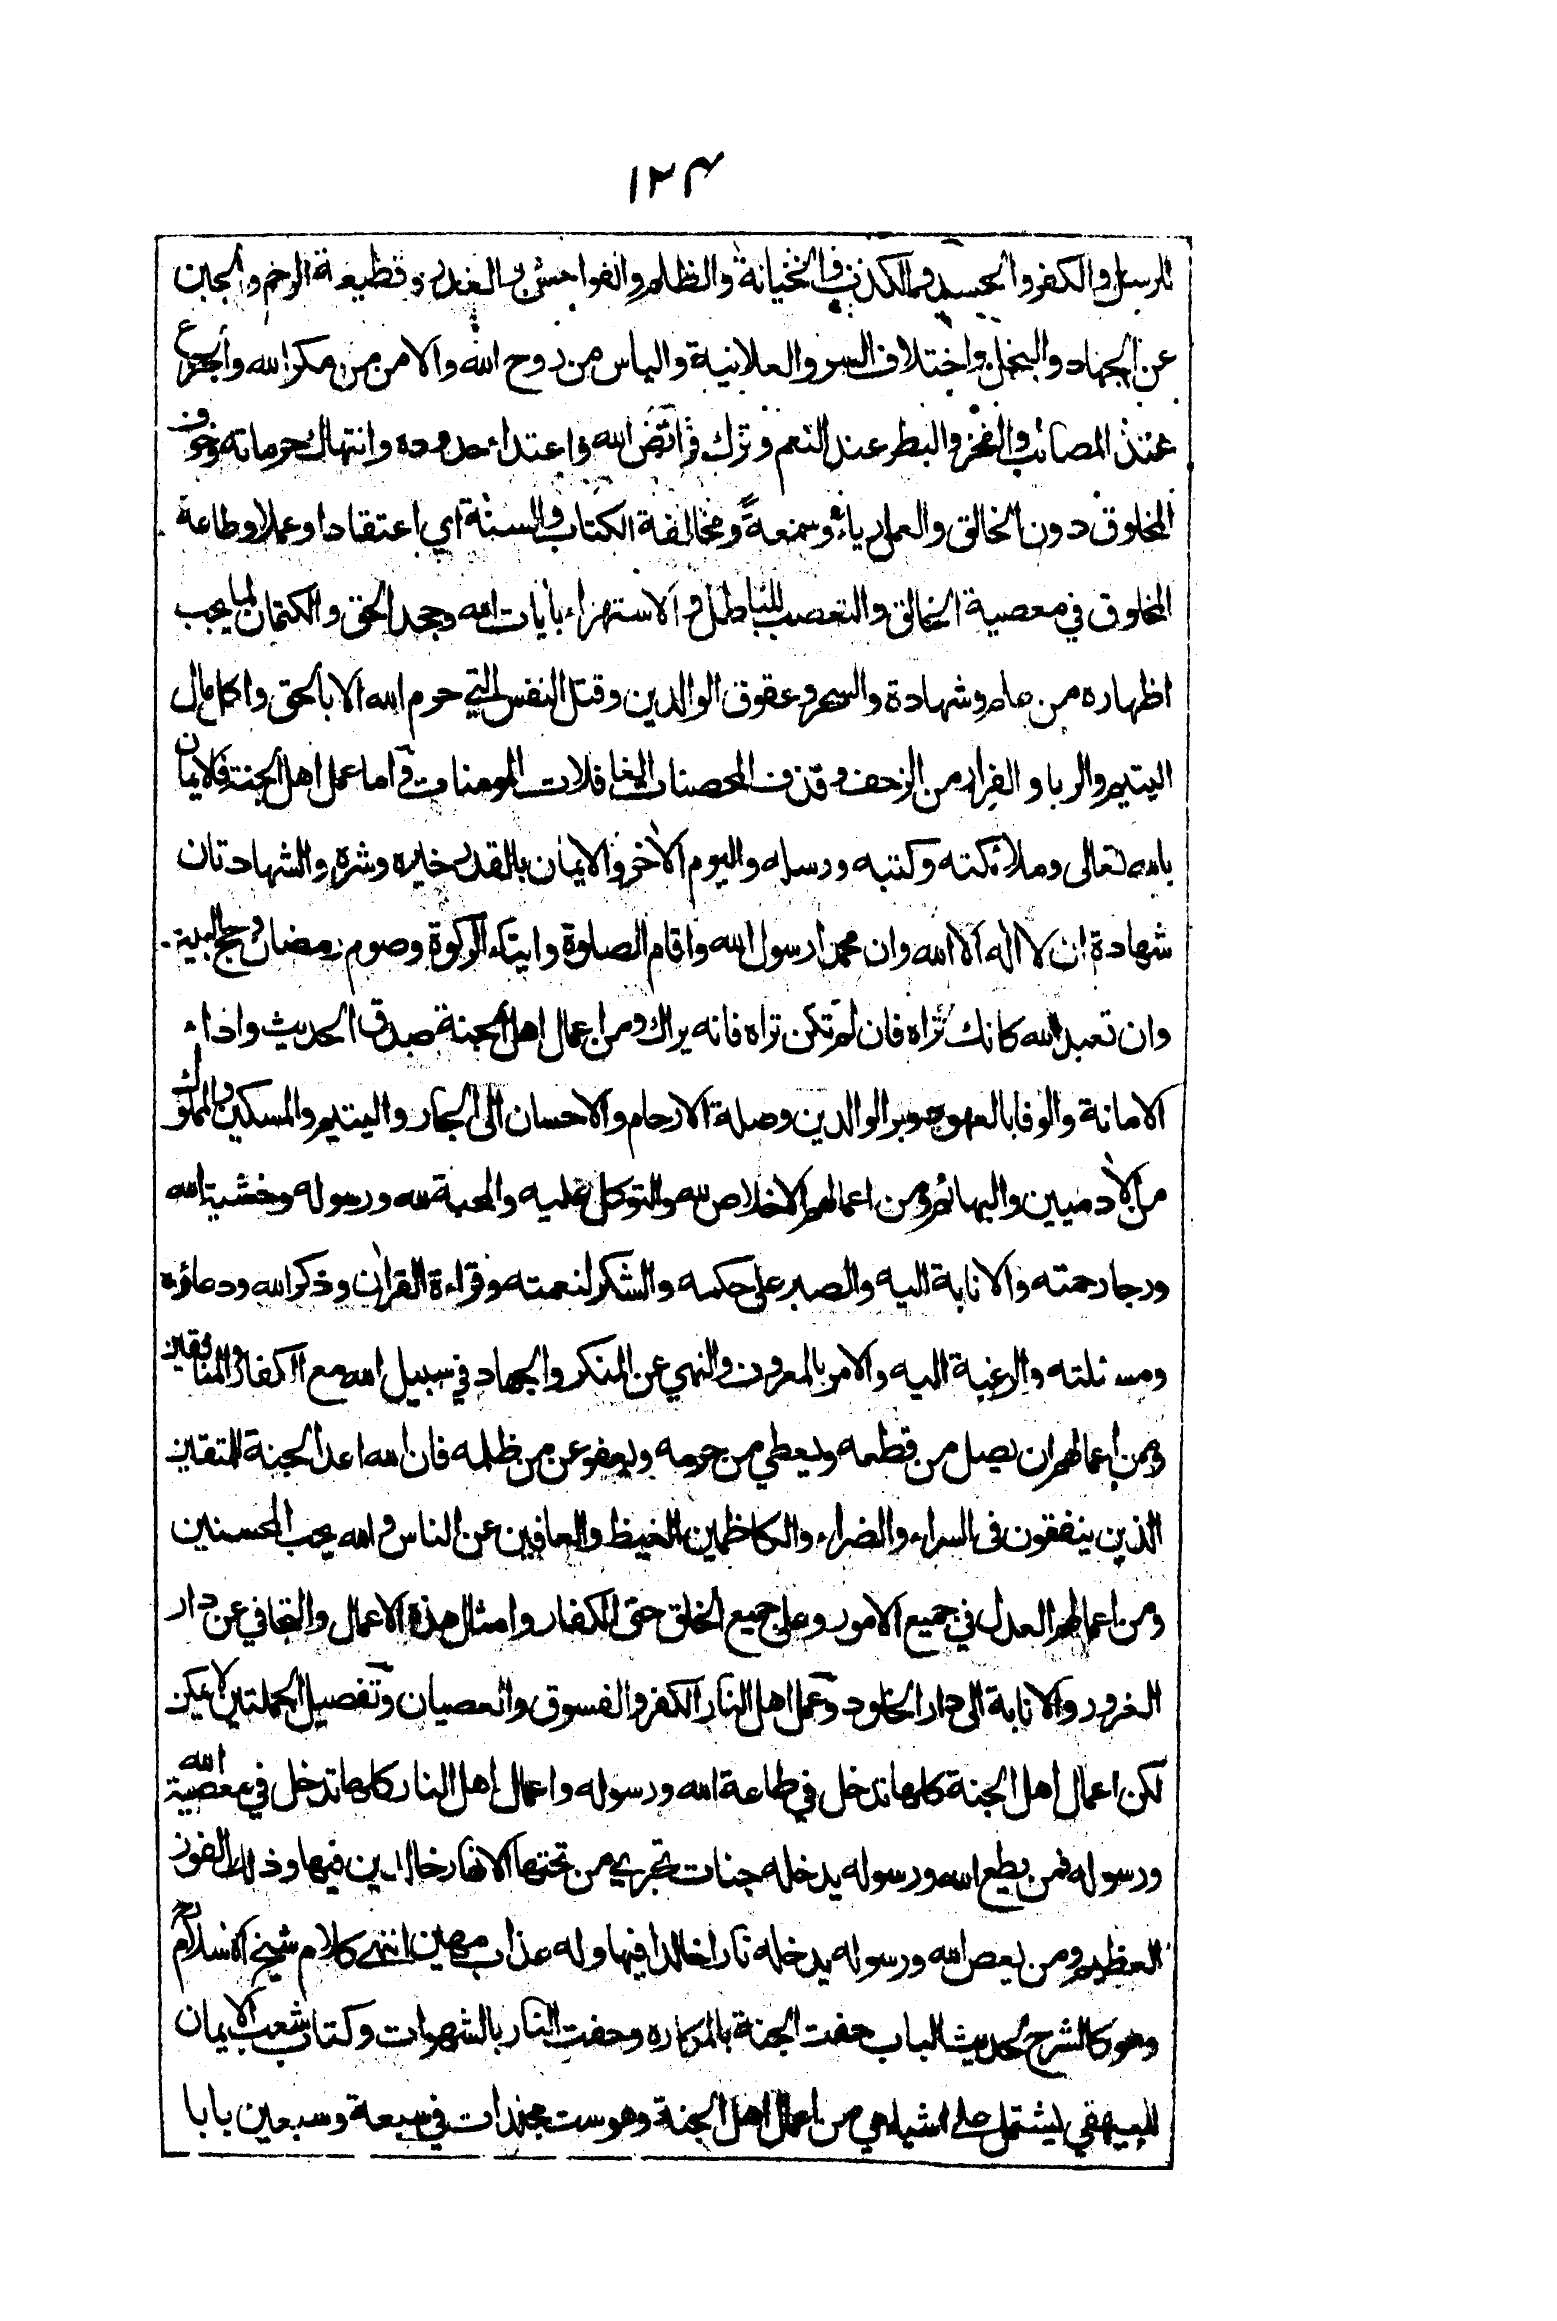 ١٢٤
للرسل والكفر والحسد والكذب والخيانة والظلم والفواحش والغدر وقطيعة الرحم والجبن
عن الجهاد والبخل واختلاف السر والعلانية والياس من روح الله والامن من مكر الله والجزع
عند المصائب والفخر والبطر عند النعم وترك فرائض الله واعتداء حدوده وانتهاك حرماته وخوف
المخلوق دون الخالق والعمل رياء وسمعة ومخالفة الكتاب والسنة اي اعتقادا وعملا وطاعة
المخلوق في معصية الخالق والتعصب للباطل والاستهزاء بايات الله وجحد الحق والكتمان لما يجب
اظهاره من علم وشهادة والسحر وعقوق الوالدين وقتل النفس التي حرم الله الا بالحق واكل مال
اليتيم والربا والفرار من الزحف وقذف المحصنات الغافلات المومنات واما عمل اهل الجنة فلايمان
بالله تعالى وملائكته وكتبه ورسله واليوم الآخر والايمان بالقدر خيره وشره والشهادتان
شهادة ان لا اله الا الله وان محمدا رسول الله واقام الصلوة وايتاء الزكوة وصوم رمضان وحج البيت
وان تعبد الله كانك تراه فان لم تكن تراه فانه يراك ومن اعمال اهل الجنة صدق الحديث واداء
الامانة والوفا بالعهود وبر الوالدين وصلة الارحام والاحسان الى الجار واليتيم والمسكين والمملوك
من الآدميين والبهائم ومن اعمالهم الاخلاص لله والتوكل عليه والمحبة لله ورسوله وخشية الله
ورجا رحمته والانابة اليه والصبر على حكمه والشكر لنعمته وقراءة القرآن وذكر الله ودعاؤه
ومسئلته والرغبة اليه والامر بالمعروف والنهي عن المنكر والجهاد في سبيل الله مع الكفار والمنافقين
ومن اعمالهم ان يصل من قطعه ويعطي من حرمه ويعفو عن من ظلمه فان الله اعد الجنة للمتقين
الذين ينفقون في السراء والضراء والكاظمين الغيظ والعافين عن الناس والله يحب المحسنين
ومن اعمالهم العدل في جميع الامور وعلى جميع الخلق حتى الكفار وامثال هذه الاعمال والتجافي عن دار
الغرور والانابة الى دار الخلود وعمل اهل النار الكفر والفسوق والعصيان وتفصيل الجملتين لا يمكن
لكن اعمال اهل الجنة كلها تدخل في طاعة الله ورسوله واعمال اهل النار كلها تدخل في معصية الله
ورسوله فمن يطع الله ورسوله يدخله جنات تجري من تحتها الانهار خالدين فيها وذلك الفوز
العظيم ومن يعص الله ورسوله يدخله نارا خالدا فيها وله عذاب مهين انتهى كلام شيخ الاسلام رح
وهو كالشرح لحديث الباب حفت الجنة بالمكاره وحفت النار بالشهوات وكتاب شعب الايمان
للبيهقي يشتمل على اشياء هي من اعمال اهل الجنة وهو ست مجلدات في سبعة وسبعين بابا